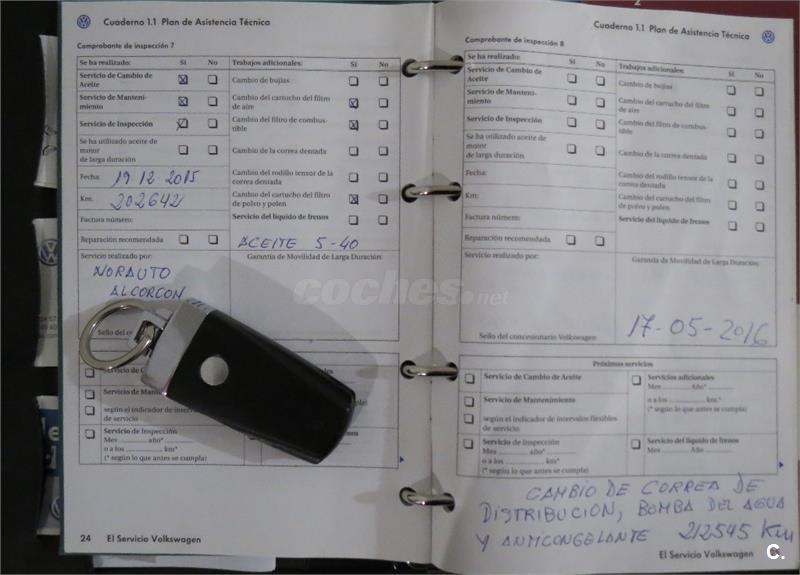 Cuaderno 1.1 Plan de Asistencia Técnica
Comprobante de inspección 7
Se ha realizado: Sí No Trabajos adicionales: Sí No
Servicio de Cambio de
Aceite
Cambio de bujías
Servicio de Manteni-
miento
Cambio del cartucho del filtro
de aire
Servicio de Inspección
Cambio del filtro de combus-
tible
Se ha utilizado aceite de
motor
de larga duración
Cambio de la correa dentada
Fecha: 19-12-2015
Cambio del rodillo tensor de la
correa dentada
Km: 202642
Cambio del cartucho del filtro
de polvo y polen
Factura número:
Servicio del líquido de frenos
Reparación recomendada
ACEITE 5-40
Servicio realizado por:
Garantía de Movilidad de Larga Duración:
NORAUTO
ALCORCON
Sello del
según el indicador de
de servicio
Servicio de Inspección
Mes año*
o a los km*
(* según lo que antes se cumpla)
24 El Servicio Volkswagen
Cuaderno 1.1 Plan de Asistencia Técnica
Comprobante de inspección 8
Se ha realizado: Sí No Trabajos adicionales: Sí No
Servicio de Cambio de
Aceite
Cambio de bujías
Servicio de Manteni-
miento
Cambio del cartucho del filtro
de aire
Servicio de Inspección
Cambio del filtro de combus-
tible
Se ha utilizado aceite de
motor
de larga duración
Cambio de la correa dentada
Fecha:
Cambio del rodillo tensor de la
correa dentada
Km:
Cambio del cartucho del filtro
de polvo y polen
Factura número:
Servicio del líquido de frenos
Reparación recomendada
Servicio realizado por:
Garantía de Movilidad de Larga Duración:
17-05-2016
Sello del concesionario Volkswagen
Próximos servicios
Servicio de Cambio de Aceite
Servicio de Mantenimiento
según el indicador de intervalos flexibles
de servicio
Servicio de Inspección
Mes año*
o a los km*
(* según lo que antes se cumpla)
Servicios adicionales
Mes Año*
o a los km*
(* según lo que antes se cumpla)
Servicio del líquido de frenos
Mes Año*
CAMBIO DE CORREA DE
DISTRIBUCION, BOMBA DEL AGUA
Y ANTICONGELANTE 212545 Km
El Servicio Volkswagen
coches.net
C.